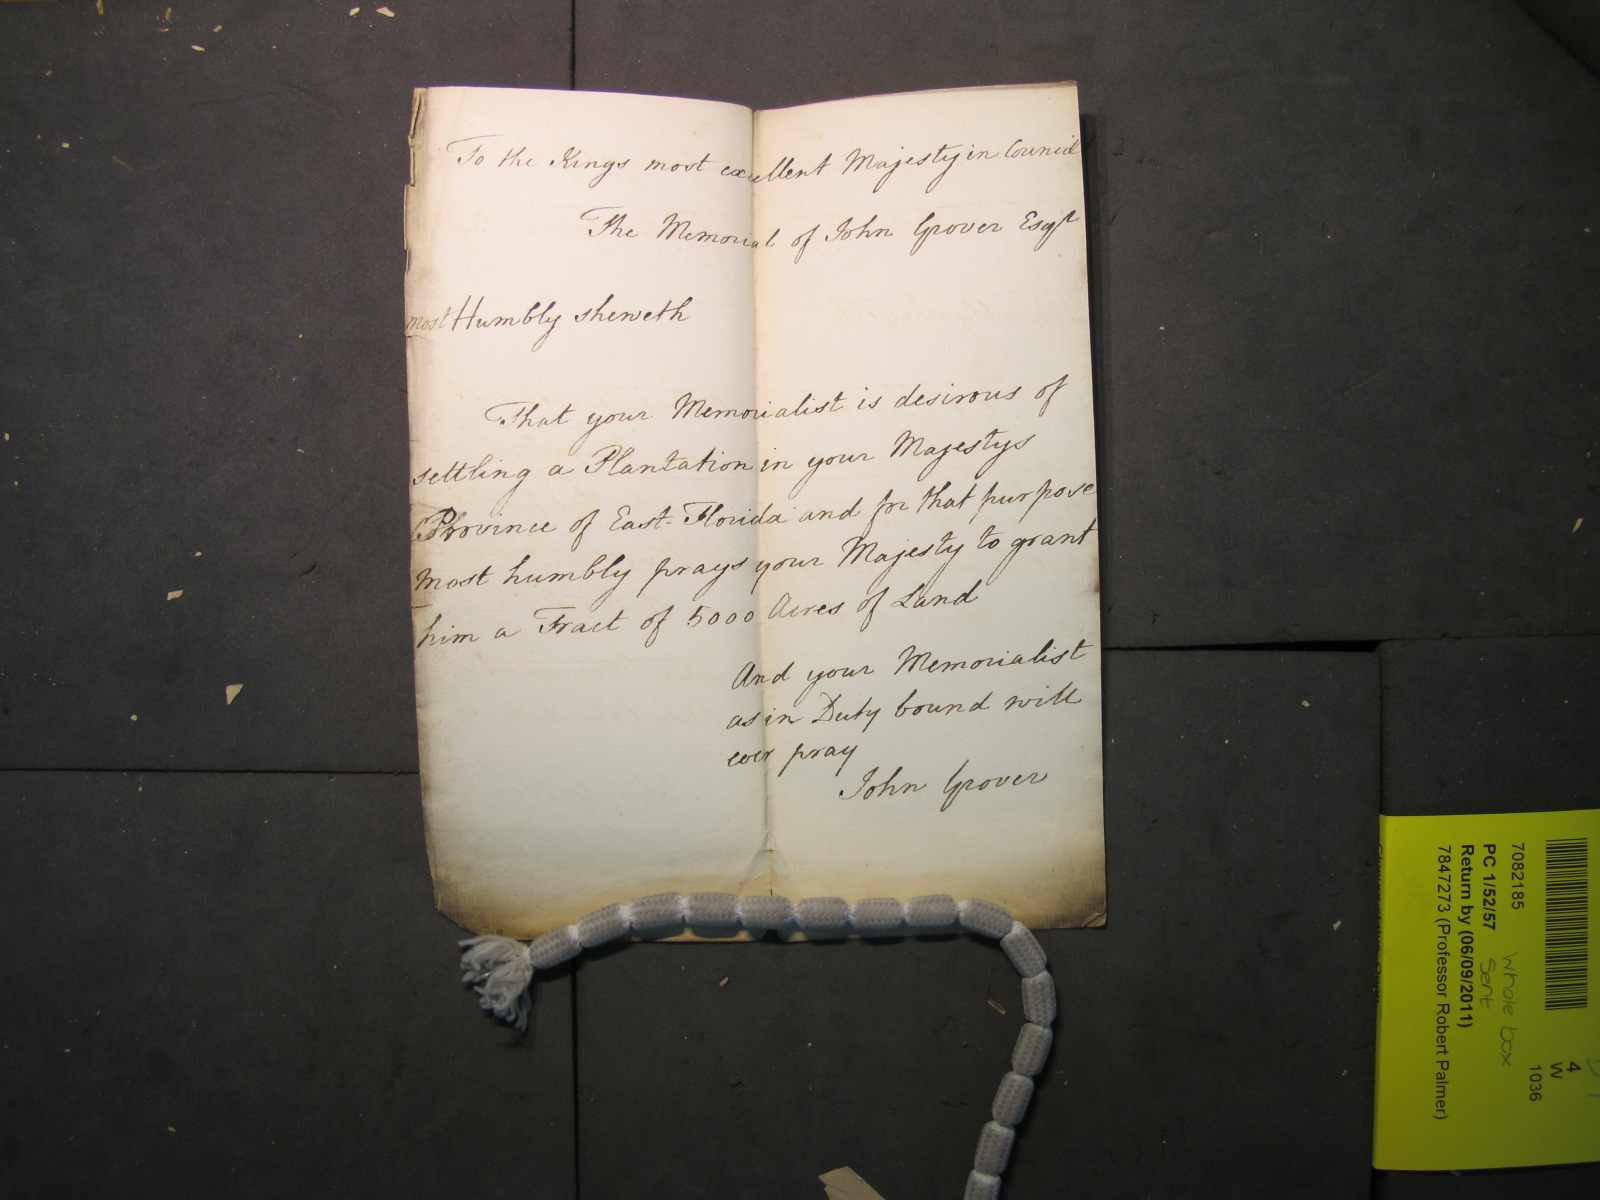 To the Kings most excellent Majesty in Council
The Memorial of John Grover Esqr
most Humbly sheweth
That your Memorialist is desirous of
settling a Plantation in your Majestys
Province of East-Florida and for that purpose
most humbly prays your Majesty to grant
him a Tract of 5000 Acres of Land
And your Memorialist
as in Duty bound will
ever pray
John Grover
7082185
PC 1/52/57
Return by (06/09/2011)
7847273 (Professor Robert Palmer)
Whole box
Sent
4
W
1036